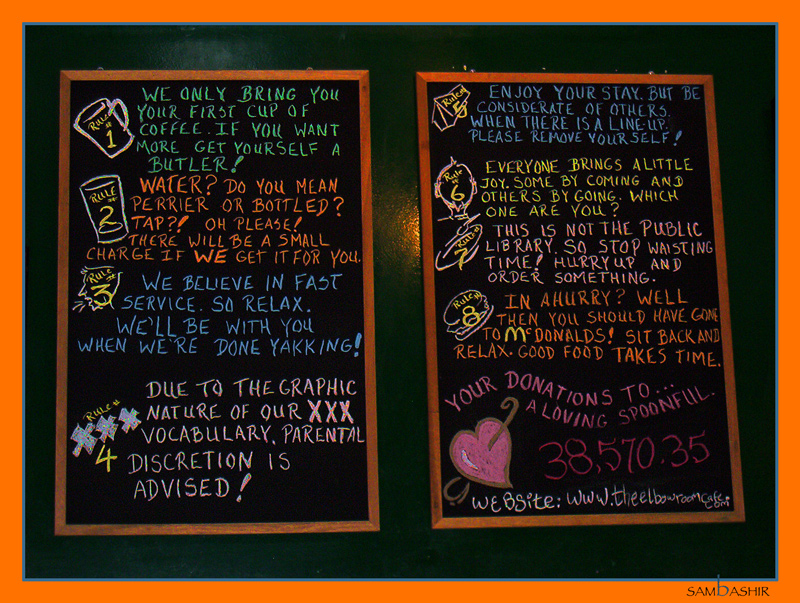 RULE # 1
WE ONLY BRING YOU
YOUR FIRST CUP OF
COFFEE. IF YOU WANT
MORE GET YOURSELF A
BUTLER!
RULE # 2
WATER? DO YOU MEAN
PERRIER OR BOTTLED?
TAP?! OH PLEASE!
THERE WILL BE A SMALL
CHARGE IF WE GET IT FOR YOU.
RULE # 3
WE BELIEVE IN FAST
SERVICE. SO RELAX.
WE'LL BE WITH YOU
WHEN WE'RE DONE YAKKING!
RULE # 4
DUE TO THE GRAPHIC
NATURE OF OUR XXX
VOCABULARY, PARENTAL
DISCRETION IS
ADVISED!
Rule #
ENJOY YOUR STAY. BUT BE
CONSIDERATE OF OTHERS.
WHEN THERE IS A LINE-UP.
PLEASE REMOVE YOURSELF!
Rule # 6
EVERYONE BRINGS A LITTLE
JOY. SOME BY COMING AND
OTHERS BY GOING. WHICH
ONE ARE YOU?
Rule # 7
THIS IS NOT THE PUBLIC
LIBRARY. SO STOP WAISTING
TIME! HURRY UP AND
ORDER SOMETHING.
Rule # 8
IN A HURRY? WELL
THEN YOU SHOULD HAVE GONE
TO McDONALDS! SIT BACK AND
RELAX. GOOD FOOD TAKES TIME.
YOUR DONATIONS TO...
A LOVING SPOONFUL.
38,570.35
WEBSITE: www.theelbowroomcafe.
com
SAMBASHIR